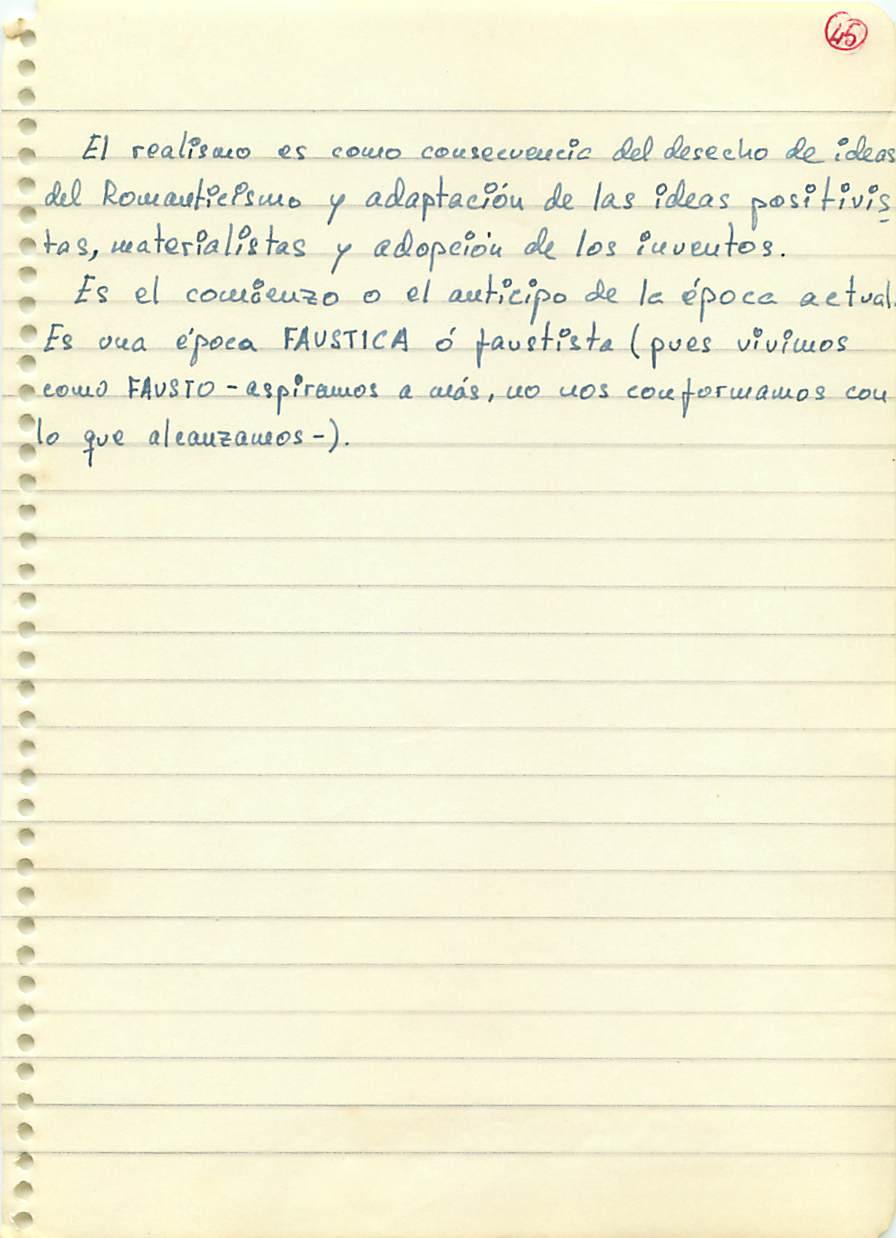 45
El realismo es como consecuencia del desecho de ideas
del Romanticismo y adaptación de las ideas positivis
tas, materialistas y adopción de los inventos.
Es el comienzo o el anticipo de la época actual.
Es una época FAUSTICA ó faustista (pues vivimos
como FAUSTO - aspiramos a más, no nos conformamos con
lo que alcanzamos -).